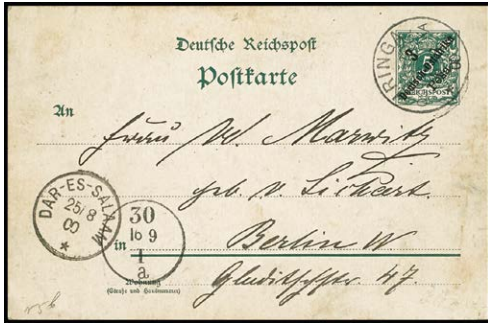 Deutsche Reichspost
Postkarte
RINGA
3
5
REICHSPOST
An
Frau W. Marwitz
geb. v. Sickart.
DAR-ES-SALAAM
25/8
00
*
30
10 9
1
a.
in
Berlin W
Wohnung
(Straße und Hausnummer)
Gleditschstr. 47.